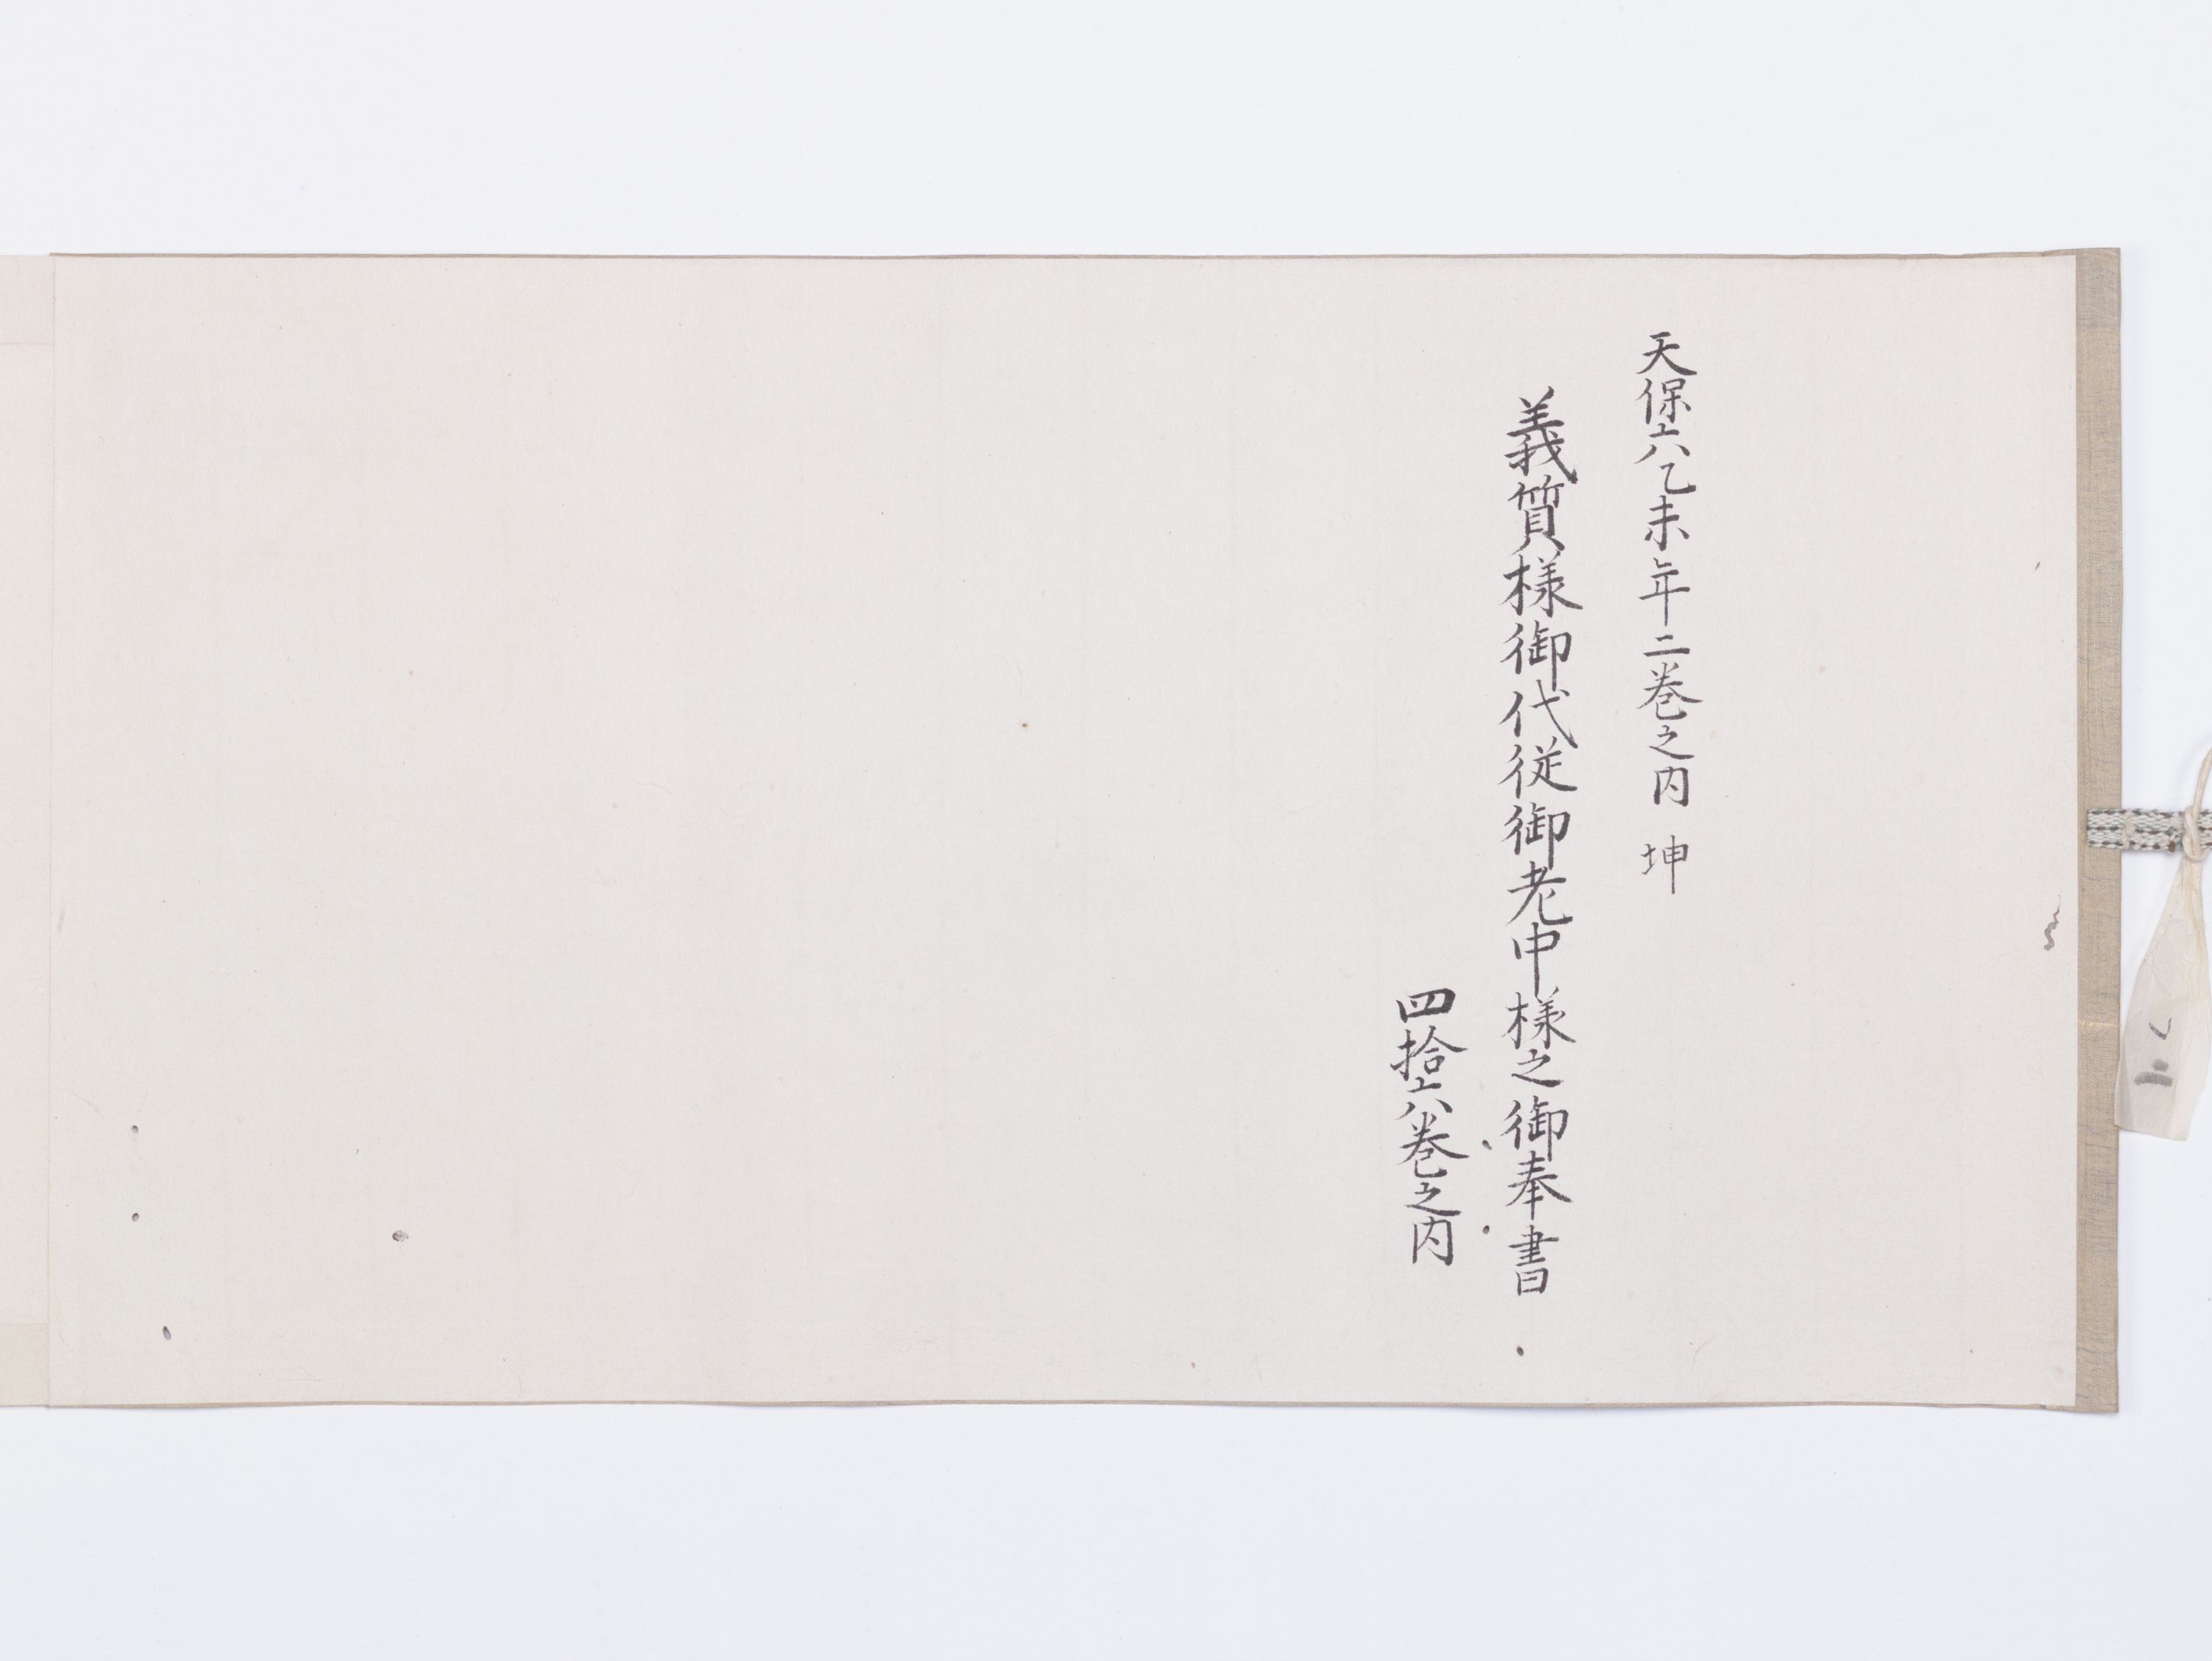 天保六乙未年二巻之内　坤
義質様御代従御老中様之御奉書
四拾六巻之内